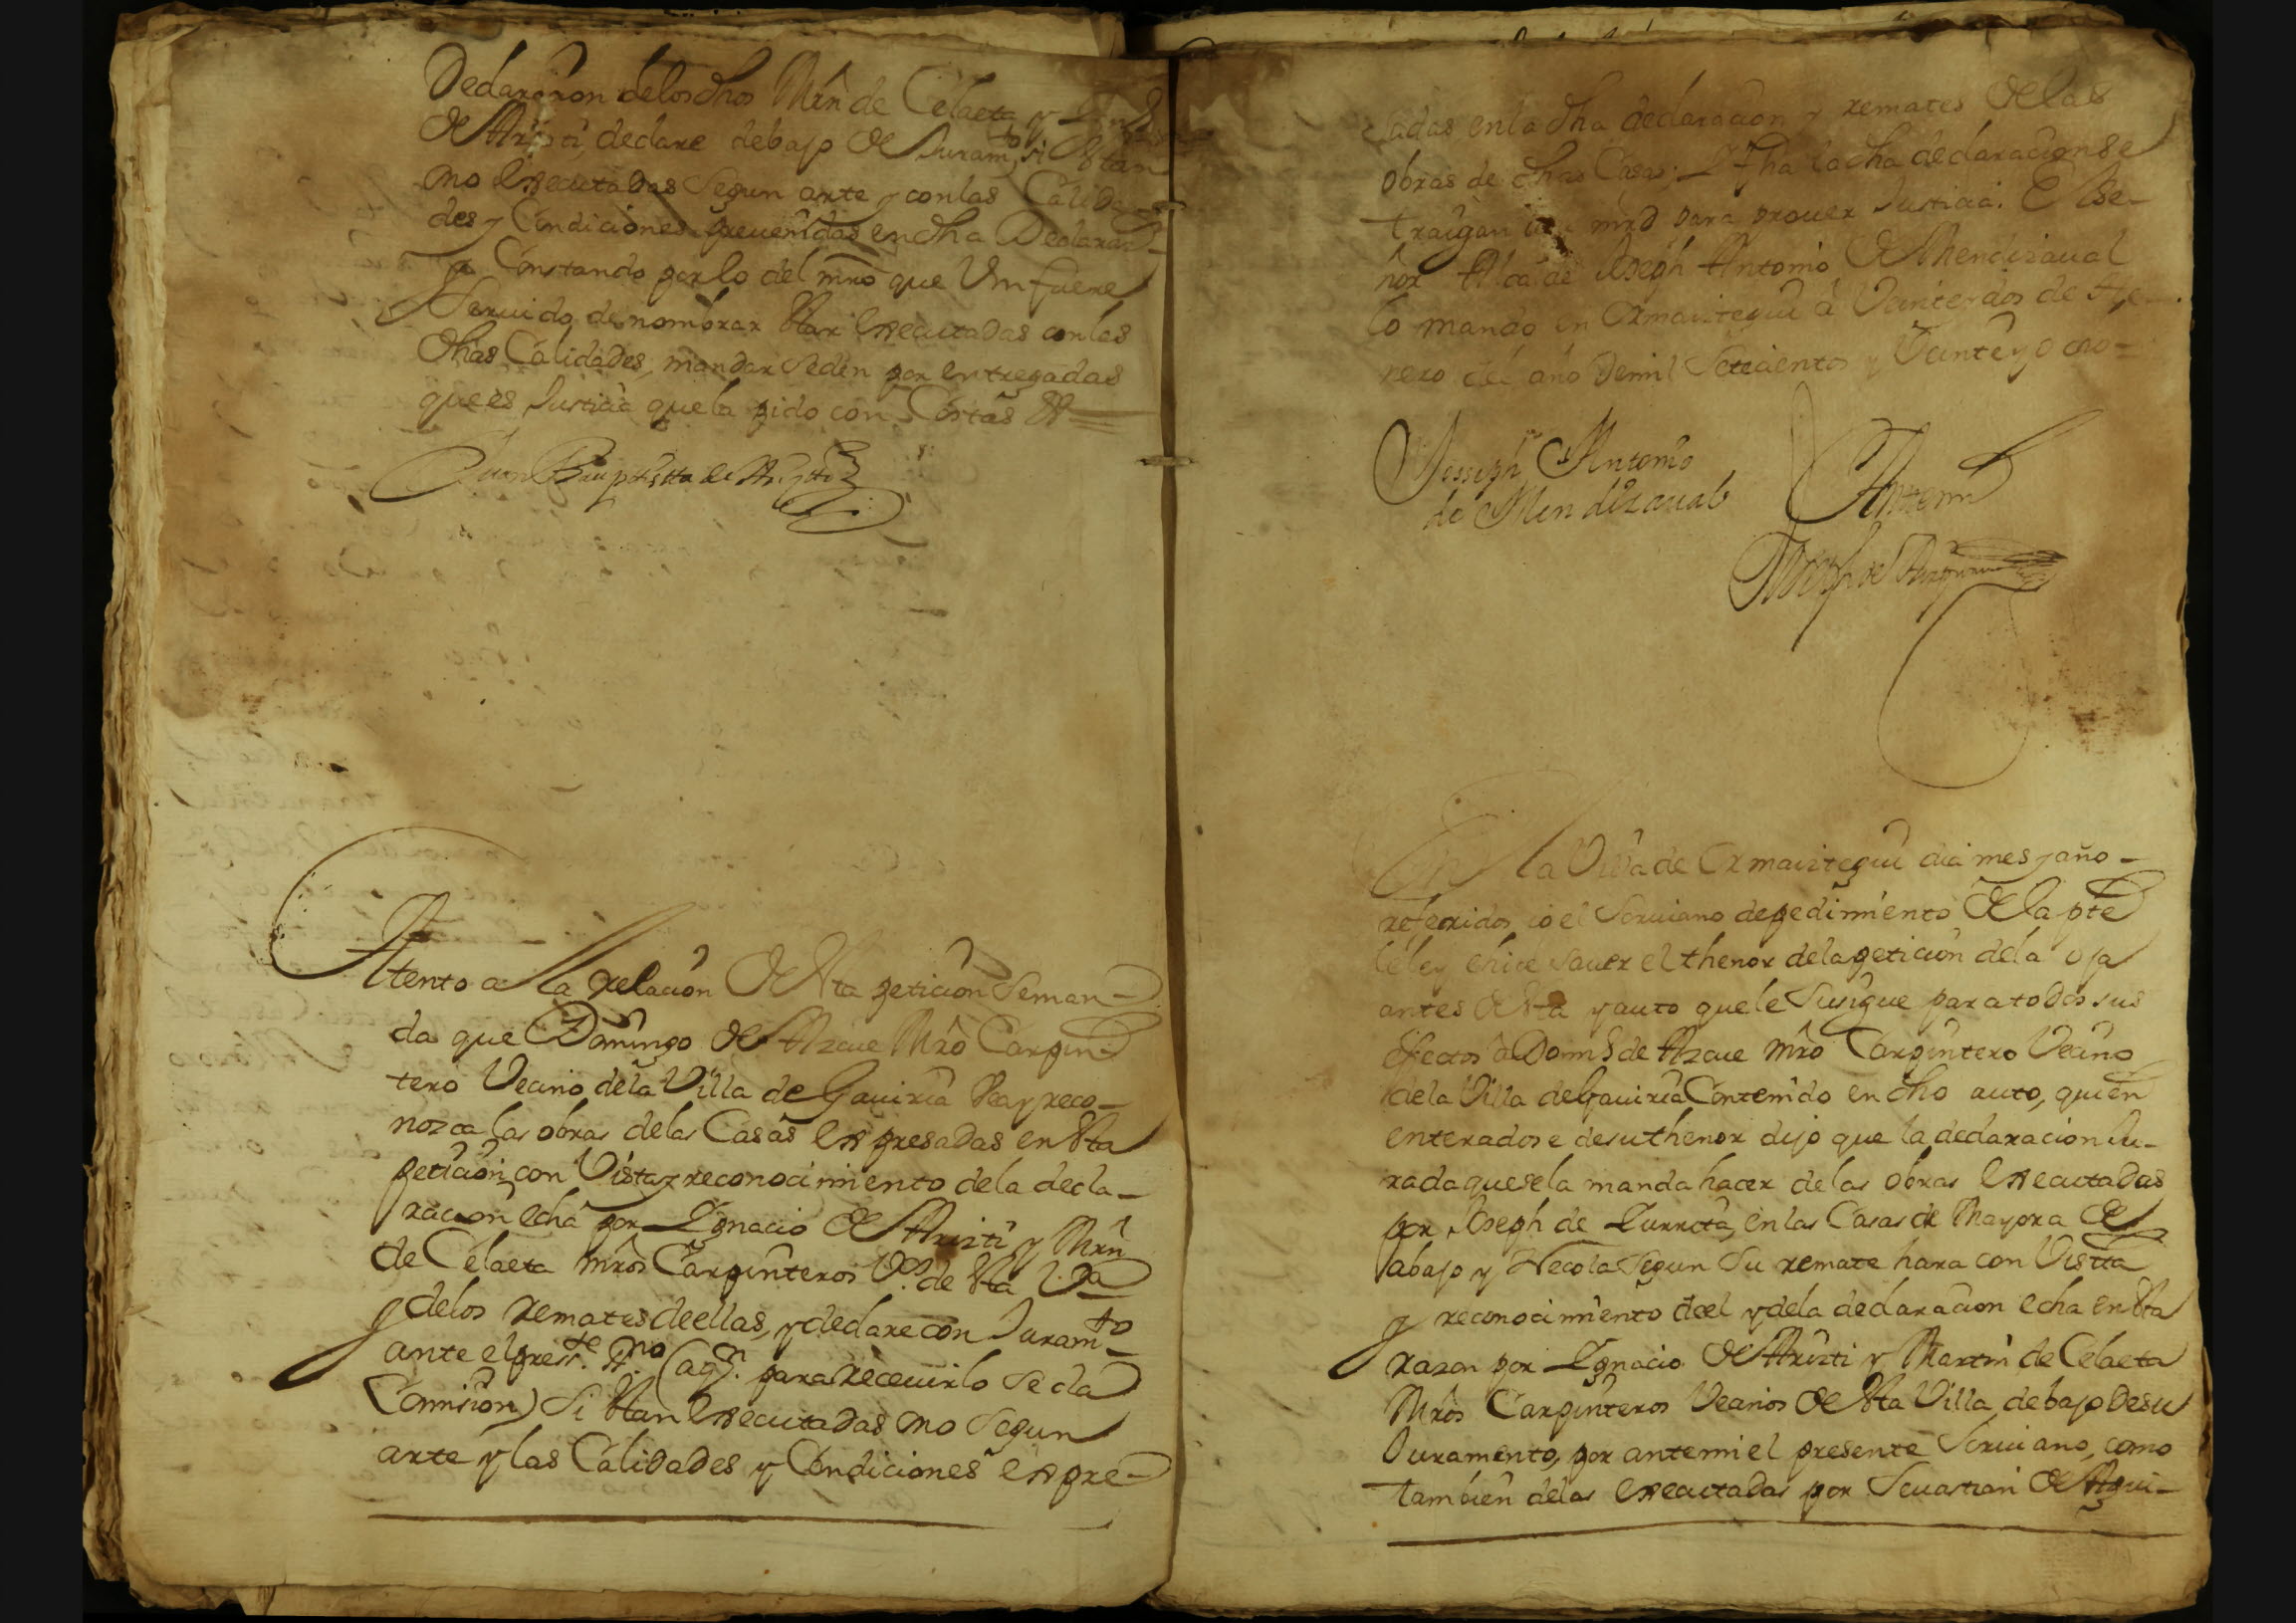 Declaraçion de los dhos Mrn de Celaeta y
de Aristi, declare debajo de Juramto si estan
o no executadas Segun arte y con las Calida-
des y Condiciones prevenidas en dha Declaraon
y Constando por lo del mro que Vm fuere
Servido de nombrar estar executadas con las
dhas Calidades, mandar se den por entregadas
que es Justicia que la pido con Costas &
Juan Bauptista de
Atento a la relacion de esta peticion Se man-
da que Domingo de Azcue Mro Carpin-
tero Vecino de la Villa de Gaviria Vea y reco-
nozca las obras de las Casas expresadas en esta
peticion, con Vista y reconocimiento de la decla-
racion echa por Ygnacio de Aristi y Mrn
de Celaeta mros Carpinteros Vos de esta Va
y de los remates de ellas, y declare con Juramto
ante el preste ssno (a qn para recevirlo se da
Comision) Si estan executadas o no Segun
arte y las Calidades y Condiciones expre-
sadas en la dha declaracion y remates de las
obras de dhas Casas; Y fha la dha declaracion se
traigan a su mrd para prover Justicia. El Se-
ñor Alcalde Joseph Antonio de Mendizaval
lo mando en Ormaiztegui a Veinte y dos de He-
nero del año de mil Setecientos y Veinte y ocho =
Josseph Antonio
de Mendizaval
Ante mi
Joseph de
En la Villa de Ormaiztegui dia mes y año
referidos yo el Scrivano de pedimiento de la pte
le ley e hice saver el thenor de la peticion de la oja
antes de esta y auto que le Susigue para todos sus
efectos a Domgo de Azcue mro Carpintero Vecino
de la Villa de Gaviria Contenido en dho auto, quien
enteradose de su thenor dijo que la declaracion Ju-
rada que se la manda hacer de las obras executadas
por Joseph de Zurruta, en las Casas de Mayora de
abajo y Necola Segun Su remate hara con Vista
y reconocimiento de el y de la declaracion echa en esta
razon por Ygnacio de Aristi y Martin de Celaeta
Mros Carpinteros Vecinos de esta Villa, debajo de su
Juramento, por ante mi el presente Scrivano, como
tambien de las executadas por Sevastian de Agui-